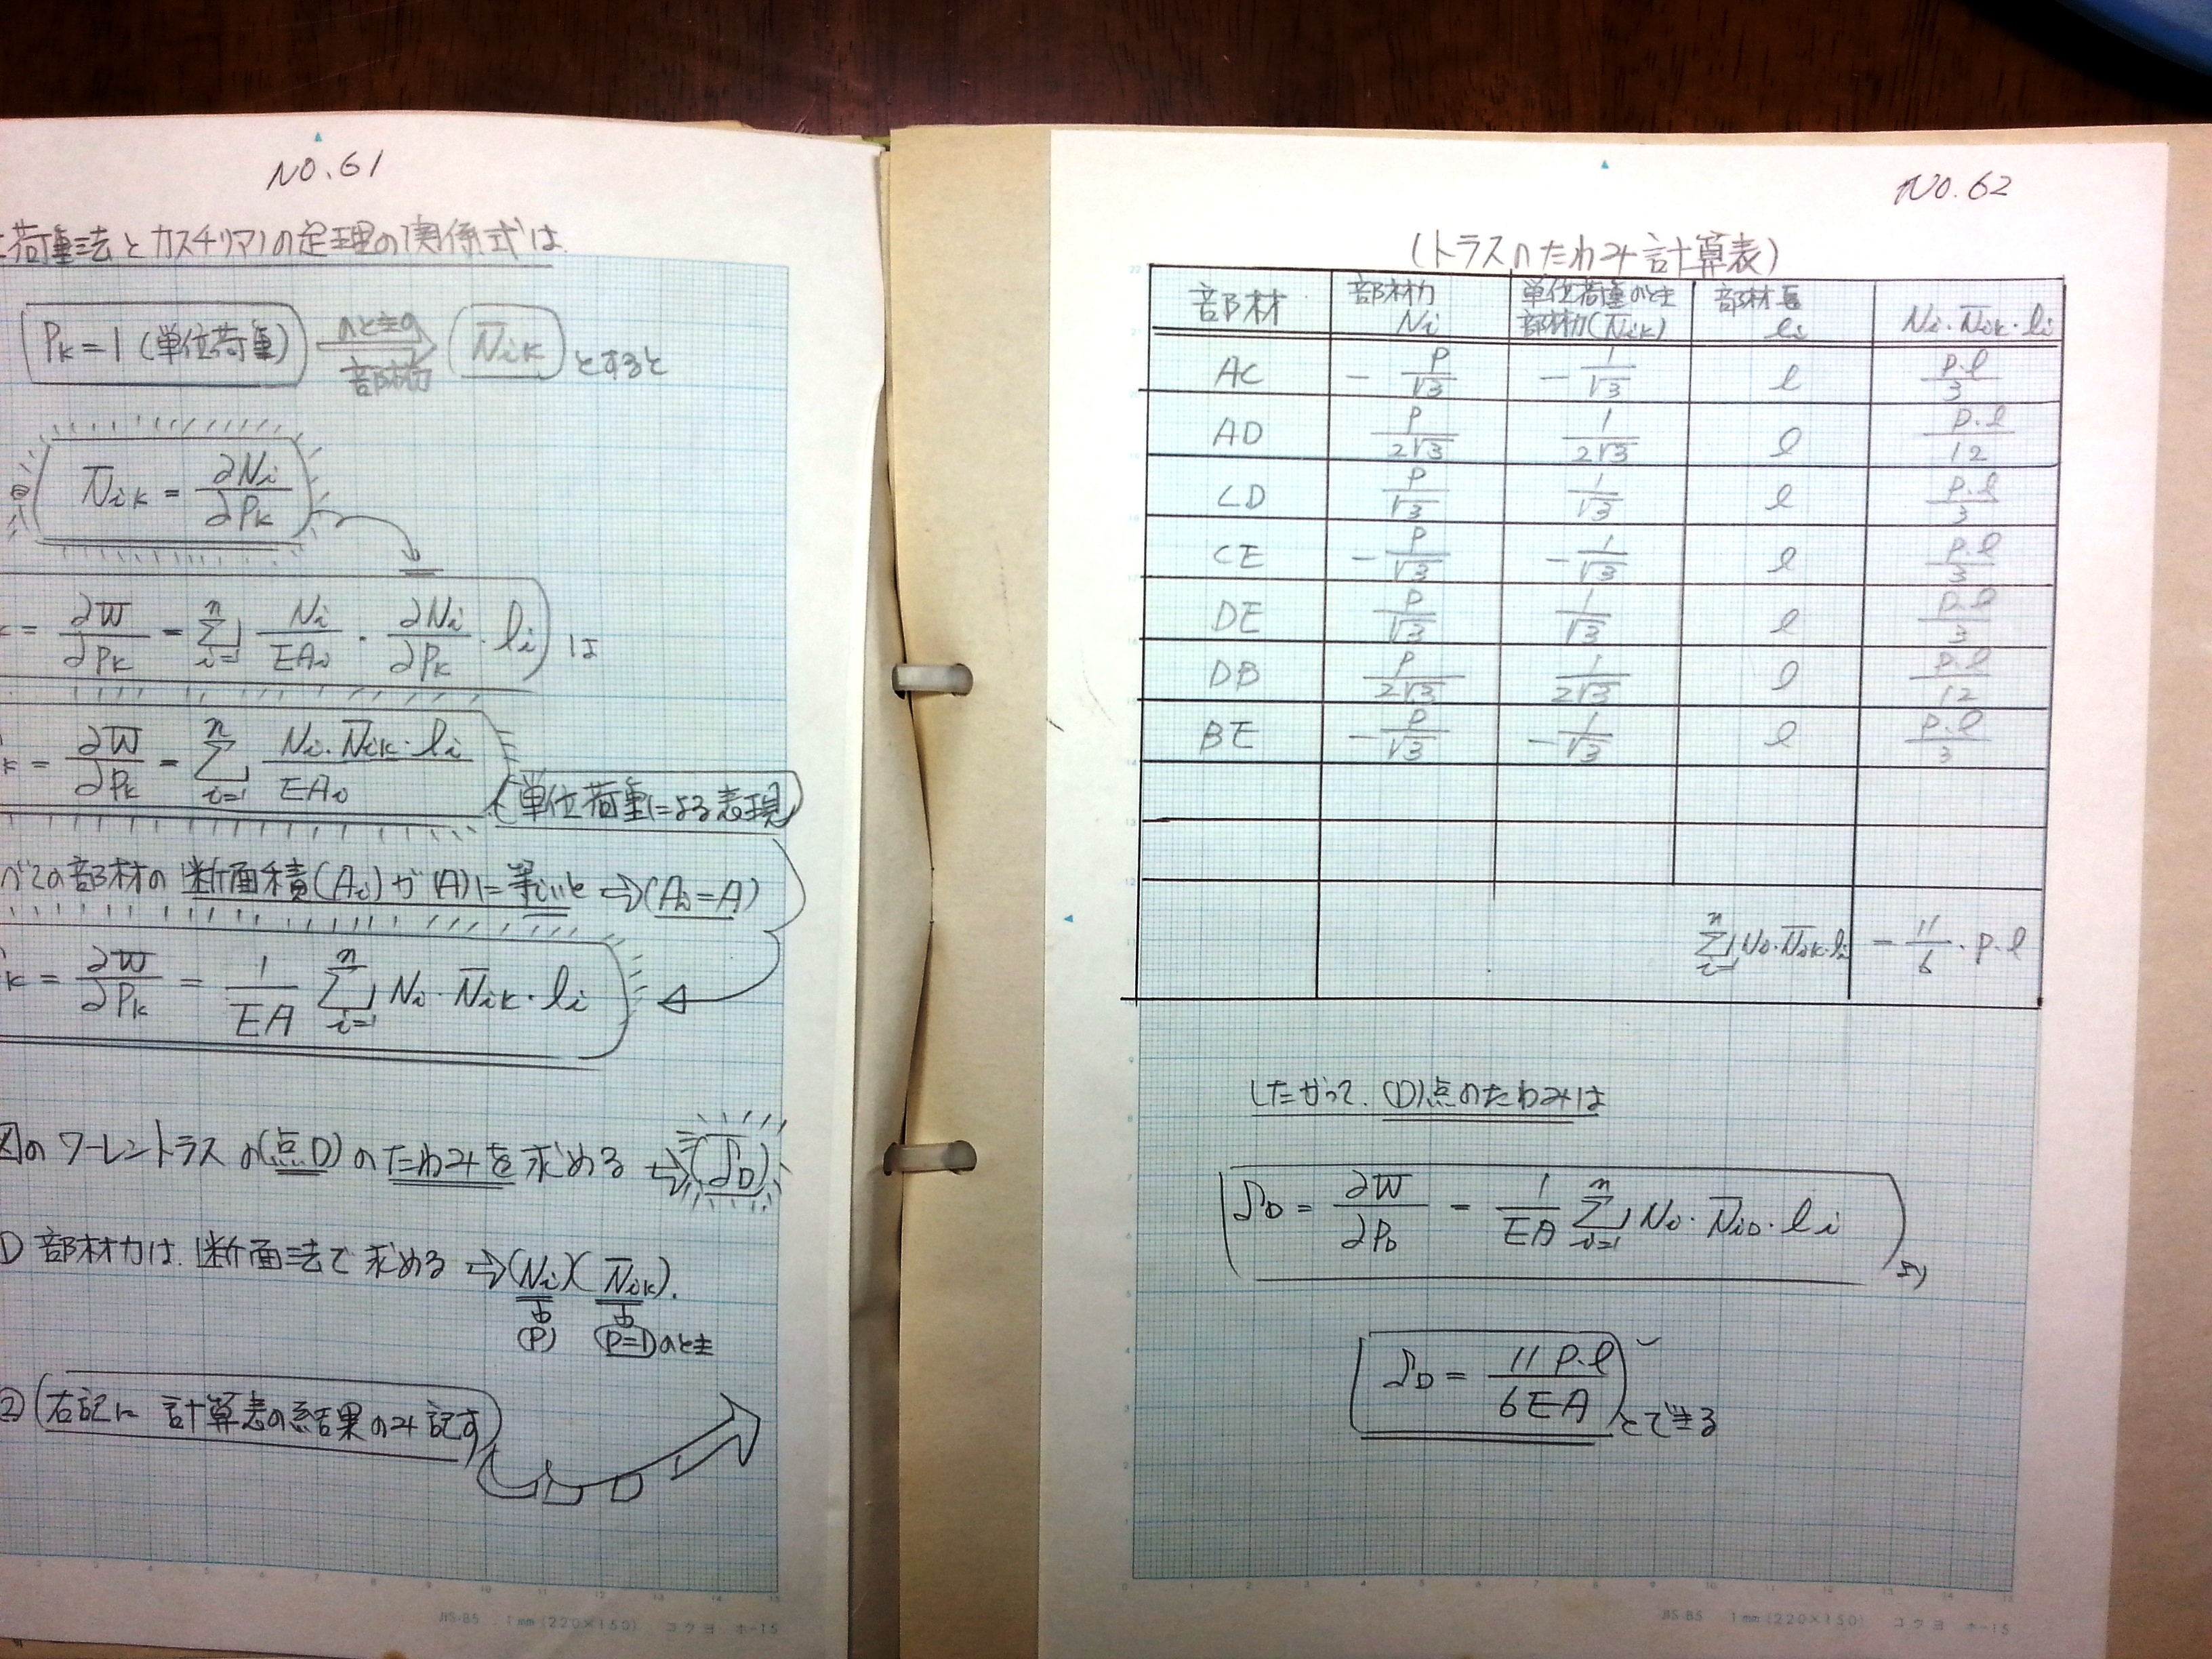 NO.61
荷重法とカスチリアノの定理の関係式は
Pk=1 (単位荷重) のときの 部材力 N̄ik とすると
N̄ik = ∂Ni/∂Pk
= ∂W/∂Pk = Σ[i=1→n] Ni/EAi · ∂Ni/∂Pk · li は
k = ∂W/∂Pk = Σ[i=1→n] Ni·N̄ik·li/EAi
(単位荷重による表現)
べての部材の断面積(Ai)が(A)に等しいと ⇨(Ai=A)
k = ∂W/∂Pk = 1/EA Σ[i=1→n] Ni·N̄ik·li
図のワーレントラスの(点D)のたわみを求める ⇨(δD)
① 部材力は、断面法で求める ⇨(Ni)(N̄ik).
(P) (P=1)のとき
② (右記に計算表の結果のみ記す)
JIS-B5 1mm(220×150) コクヨ ホ-15
NO.62
(トラスのたわみ計算表)
部材 部材力 Ni 単位荷重のとき 部材力(N̄ik) 部材長 li Ni·N̄ik·li
AC -P/√3 -1/√3 l P·l/3
AD P/2√3 1/2√3 l P·l/12
CD P/√3 1/√3 l P·l/3
CE -P/√3 -1/√3 l P·l/3
DE P/√3 1/√3 l P·l/3
DB P/2√3 1/2√3 l P·l/12
BE -P/√3 -1/√3 l P·l/3
Σ[i=1→n] Ni·N̄ik·li = 11/6·P·l
したがって、(D)点のたわみは
δD = ∂W/∂PD = 1/EA Σ[i=1→n] Ni·N̄iD·li より
δD = 11P·l/6EA とできる
JIS-B5 1mm(220×150) コクヨ ホ-15